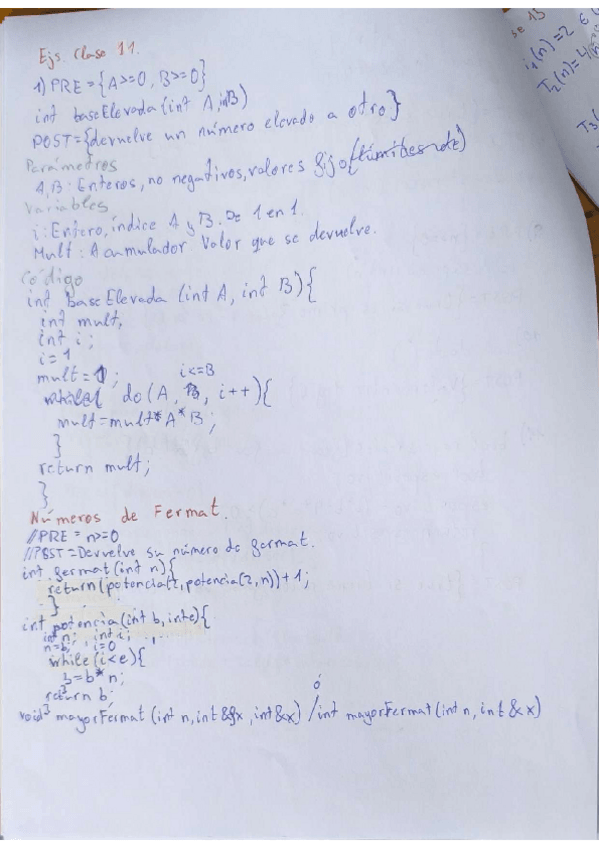 Ejs. Clase 11.
1) PRE = {A>=0, B>=0}
int baseElevada (int A, int B)
POST = {devuelve un número elevado a otro}
Parámetros
A, B: Enteros, no negativos, valores fijo
Variables
i: Entero, índice A y B. De 1 en 1.
Mult: Acumulador. Valor que se devuelve.
Código
int baseElevada (int A, int B){
int mult,
int i;
i=1
mult=1;
i<=B
do(A, B, i++){
mult=mult*A*B;
}
return mult;
}
Números de Fermat.
//PRE = n>=0
//POST = Devuelve su número de fermat.
int fermat(int n){
return(potencia(2,potencia(2,n))+1;
}
int potencia(int b, int e){
int n; int i;
n=b; i=0
while(i<e){
b=b*n;
}
return b;
}
ó
void mayorFermat (int n, int &fx, int &x) / int mayorFermat (int n, int &x)
se 13
i1(n)=2 €
T2(n)=4
T3(